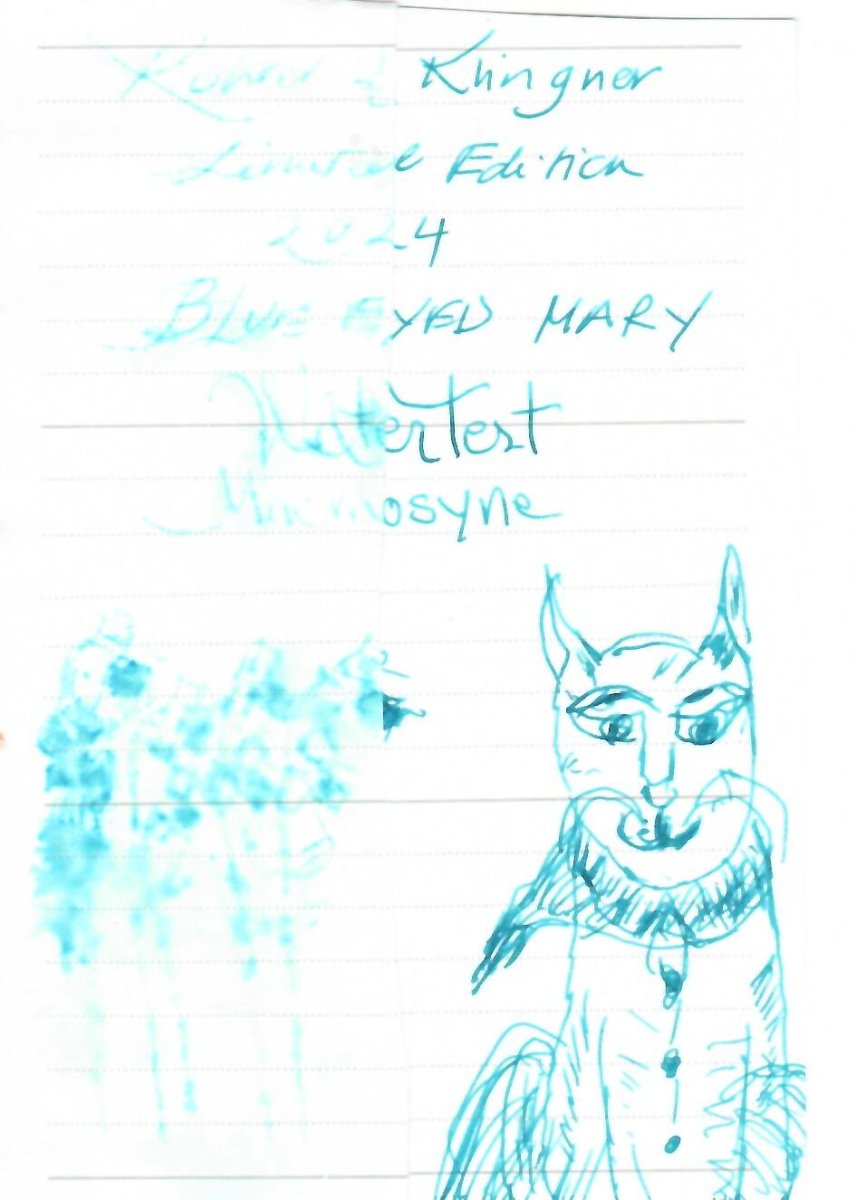 Rohrer & Klingner
Limited Edition
2024
BLUE EYED MARY
WaterTest
Mnemosyne